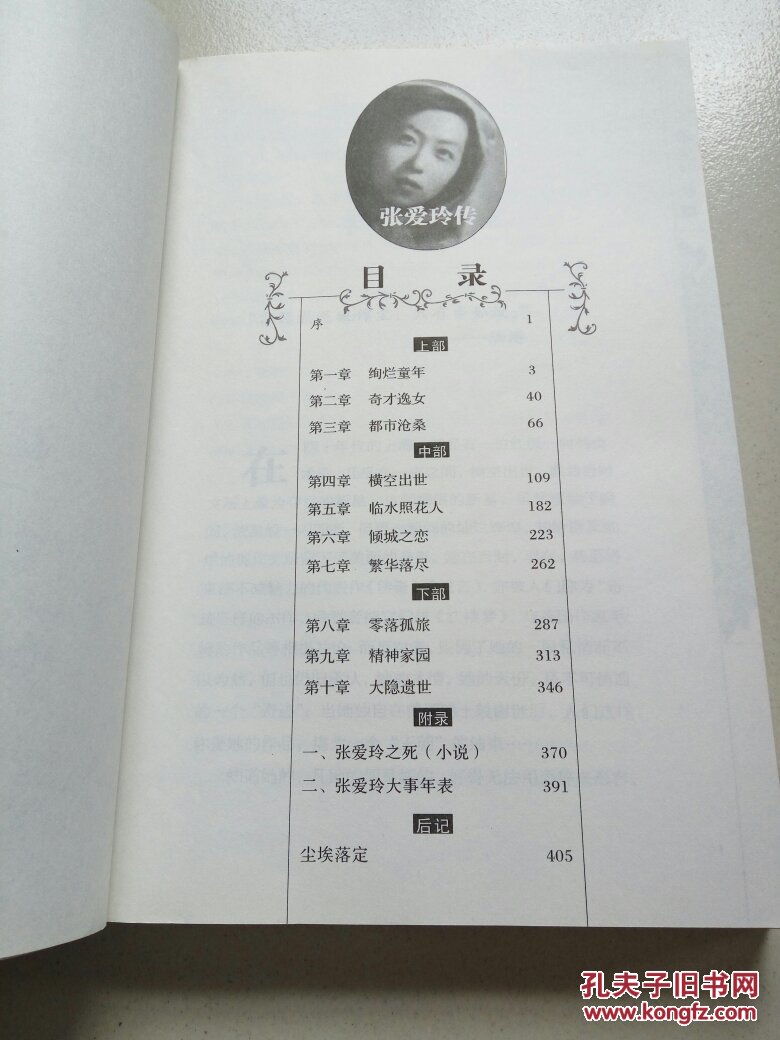 张爱玲传
目 录
序 1
上部
第一章 绚烂童年 3
第二章 奇才逸女 40
第三章 都市沧桑 66
中部
第四章 横空出世 109
第五章 临水照花人 182
第六章 倾城之恋 223
第七章 繁华落尽 262
下部
第八章 零落孤旅 287
第九章 精神家园 313
第十章 大隐遗世 346
附录
一、张爱玲之死(小说) 370
二、张爱玲大事年表 391
后记
尘埃落定 405
孔夫子旧书网
www.kongfz.com